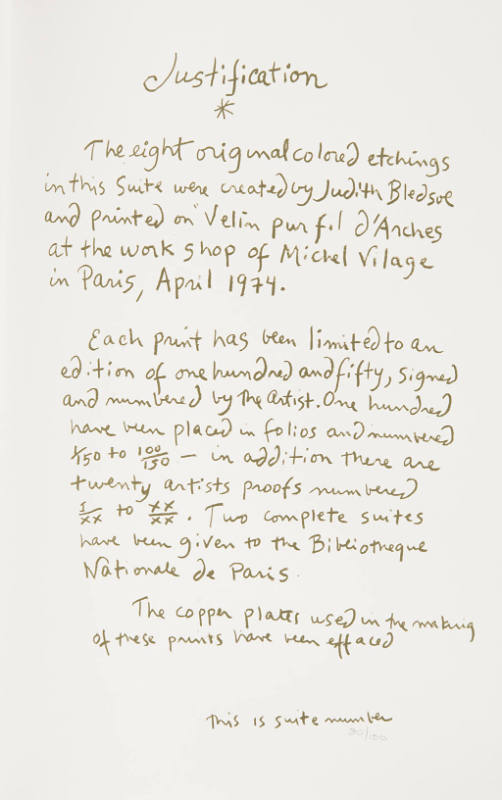 Justification
*
The eight original colored etchings
in this Suite were created by Judith Bledsoe
and printed on Velin pur fil d'Arches
at the work shop of Michel Vilage
in Paris, April 1974.
Each print has been limited to an
edition of one hundred and fifty, signed
and numbered by the artist. One hundred
have been placed in folios and numbered
1/150 to 100/150 — in addition there are
twenty artists proofs numbered
I/XX to XX/XX. Two complete suites
have been given to the Bibliotheque
Nationale de Paris.
The copper plates used in the making
of these prints have been effaced
This is suite number